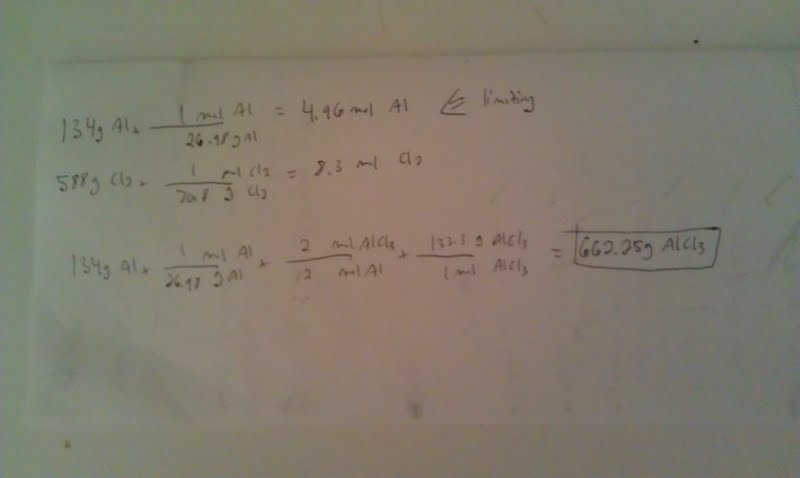 134g Al × 1 mol Al / 26.98 g Al = 4.96 mol Al ⇐ limiting
588g Cl₂ × 1 mol Cl₂ / 70.8 g Cl₂ = 8.3 mol Cl₂
134g Al × 1 mol Al / 26.98 g Al × 2 mol AlCl₃ / 2 mol Al × 132.3 g AlCl₃ / 1 mol AlCl₃ = 662.25g AlCl₃